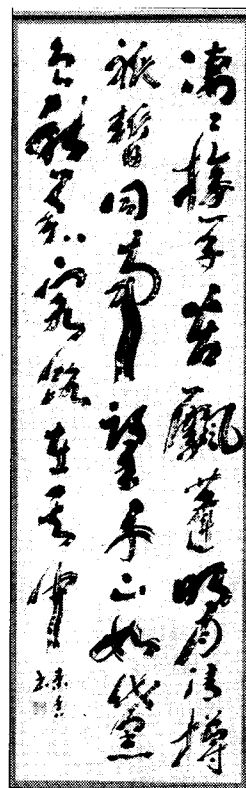 凄々遊子苦飄蓬明月清樽
祇暫同南望千山如黛
色愁君客路在其中